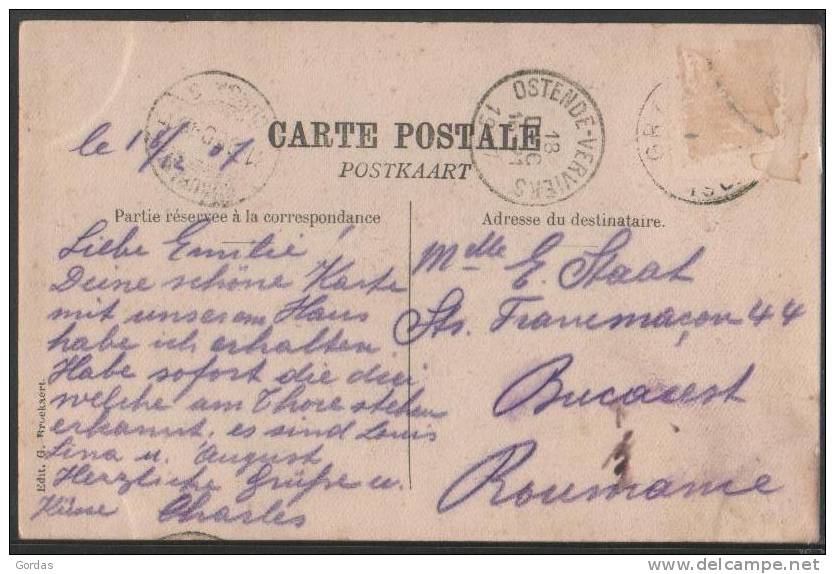 CARTE POSTALE
POSTKAART
le 18/12 07
OSTENDE-VERVIERS
18
DEC
Partie réservée à la correspondance
Adresse du destinataire.
Liebe Emilie!
Deine schöne Karte
mit unserem Haus
habe ich erhalten
Habe sofort die drei
welche am Thore stehen
erkannt, es sind Louis
Lina u. August
Herzliche Grüße u.
Küsse Charles
Melle E. Staat
Str. Francmaçon 44
Bucarest
Roumanie
Edit. G. Broekaert
Gordas
delcampe.net